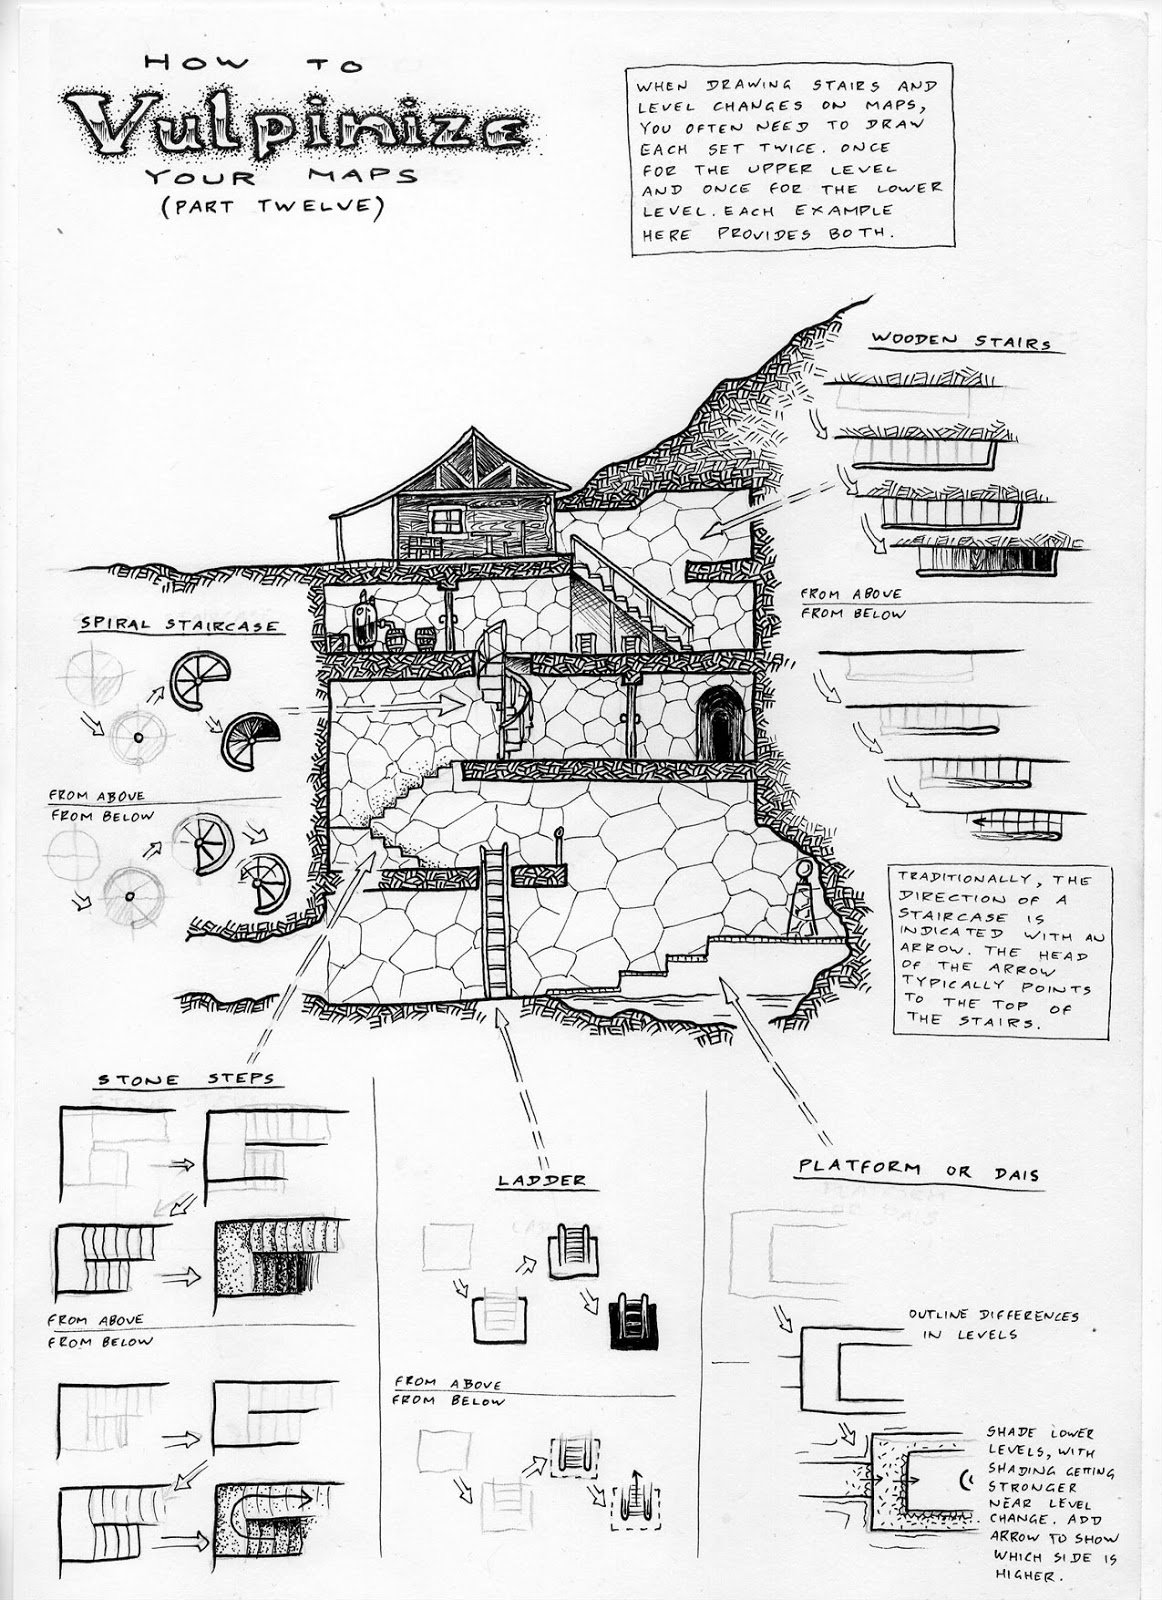 HOW TO
Vulpinize
YOUR MAPS
(PART TWELVE)
WHEN DRAWING STAIRS AND
LEVEL CHANGES ON MAPS,
YOU OFTEN NEED TO DRAW
EACH SET TWICE. ONCE
FOR THE UPPER LEVEL
AND ONCE FOR THE LOWER
LEVEL. EACH EXAMPLE
HERE PROVIDES BOTH.
WOODEN STAIRS
FROM ABOVE
FROM BELOW
SPIRAL STAIRCASE
FROM ABOVE
FROM BELOW
TRADITIONALLY, THE
DIRECTION OF A
STAIRCASE IS
INDICATED WITH AN
ARROW. THE HEAD
OF THE ARROW
TYPICALLY POINTS
TO THE TOP OF
THE STAIRS.
STONE STEPS
FROM ABOVE
FROM BELOW
LADDER
FROM ABOVE
FROM BELOW
PLATFORM OR DAIS
OUTLINE DIFFERENCES
IN LEVELS
SHADE LOWER
LEVELS, WITH
SHADING GETTING
STRONGER
NEAR LEVEL
CHANGE. ADD
ARROW TO SHOW
WHICH SIDE IS
HIGHER.